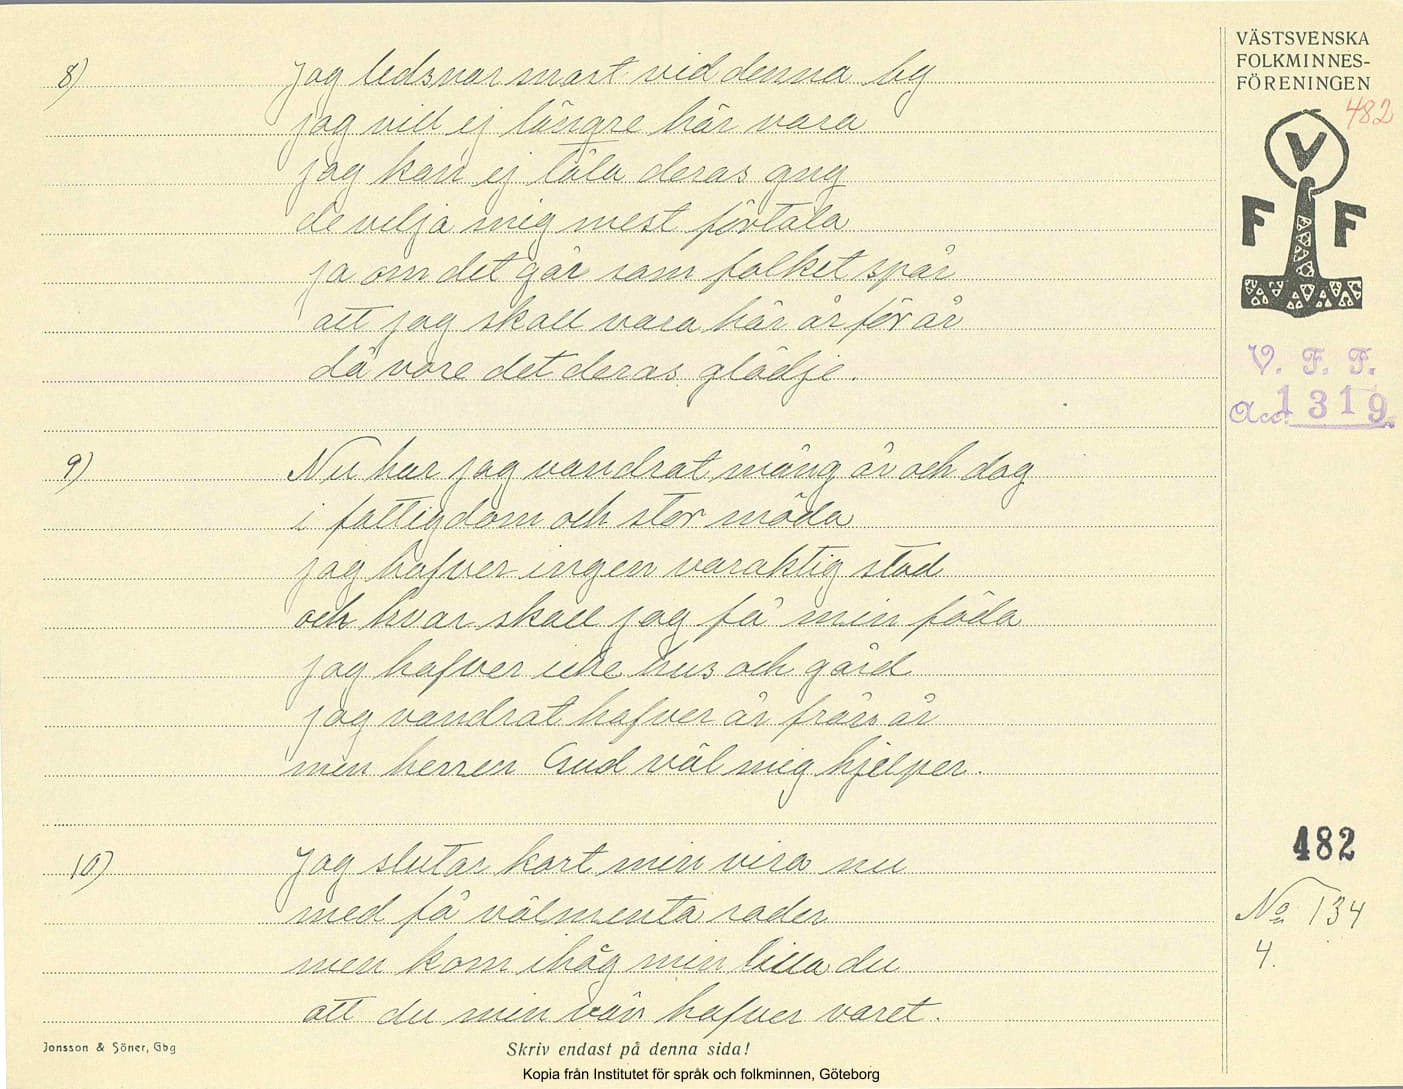 VÄSTSVENSKA
FOLKMINNES-
FÖRENINGEN
482
V
F F
V. F. F.
Acc. 1319
8) Jag ledsnar snart vid denna by
jag vill ej längre här vara
jag kan ej tåla deras gny
de vilja mig mest förtala
ja om det går som folket spår
att jag skall vara här år för år
då vore det deras glädje.
9) Nu har jag vandrat mång år och dag
i fattigdom och stor möda
jag hafver ingen varaktig stad
och hvar skall jag få min föda
jag hafver icke hus och gård
jag vandrat hafver år från år
men herren Gud väl mig hjelper.
10) Jag slutar kort min visa nu
med få välmenta rader
men kom ihåg min lilla du
att du min vän hafver varet.
482
No 134
4.
Jonsson & Söner, Gbg
Skriv endast på denna sida!
Kopia från Institutet för språk och folkminnen, Göteborg